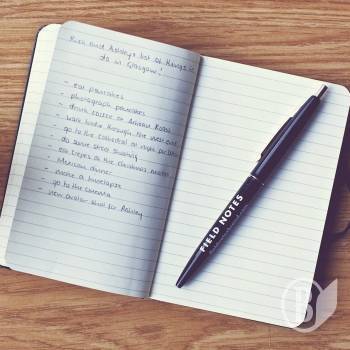 Rich and Ashley's list of things to
do in Glasgow!
- eat pancakes
- photograph pancakes
- drink coffee at Artisan Roast
- walk through the west end
- go to the Cathedral at night
- do some street shooting
- eat crepes at the Christmas market
- Mexican dinner
- make a timelapse
- go to the cinema
- new avatar shot for Ashley
FIELD NOTES
B